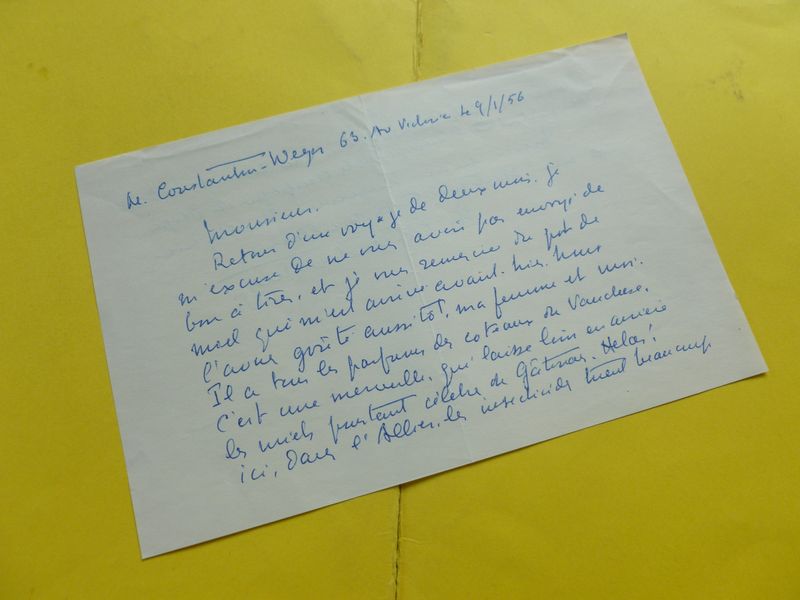 M. Constantin-Weyer 63. Av Victoria le 9/1/56
Monsieur.
Retour d'un voyage de deux mois. Je
m'excuse de ne vous avoir pas envoyé de
bon à tirer, et je vous remercie du pot de
miel qui m'est arrivé avant-hier. Nous
l'avons goûté aussitôt, ma femme et moi.
Il a tous les parfums des coteaux du Vaucluse.
C'est une merveille, qui laisse loin en arrière
les miels pourtant célèbres du Gâtinais. Hélas!
ici, dans l'Allier, les insecticides tuent beaucoup